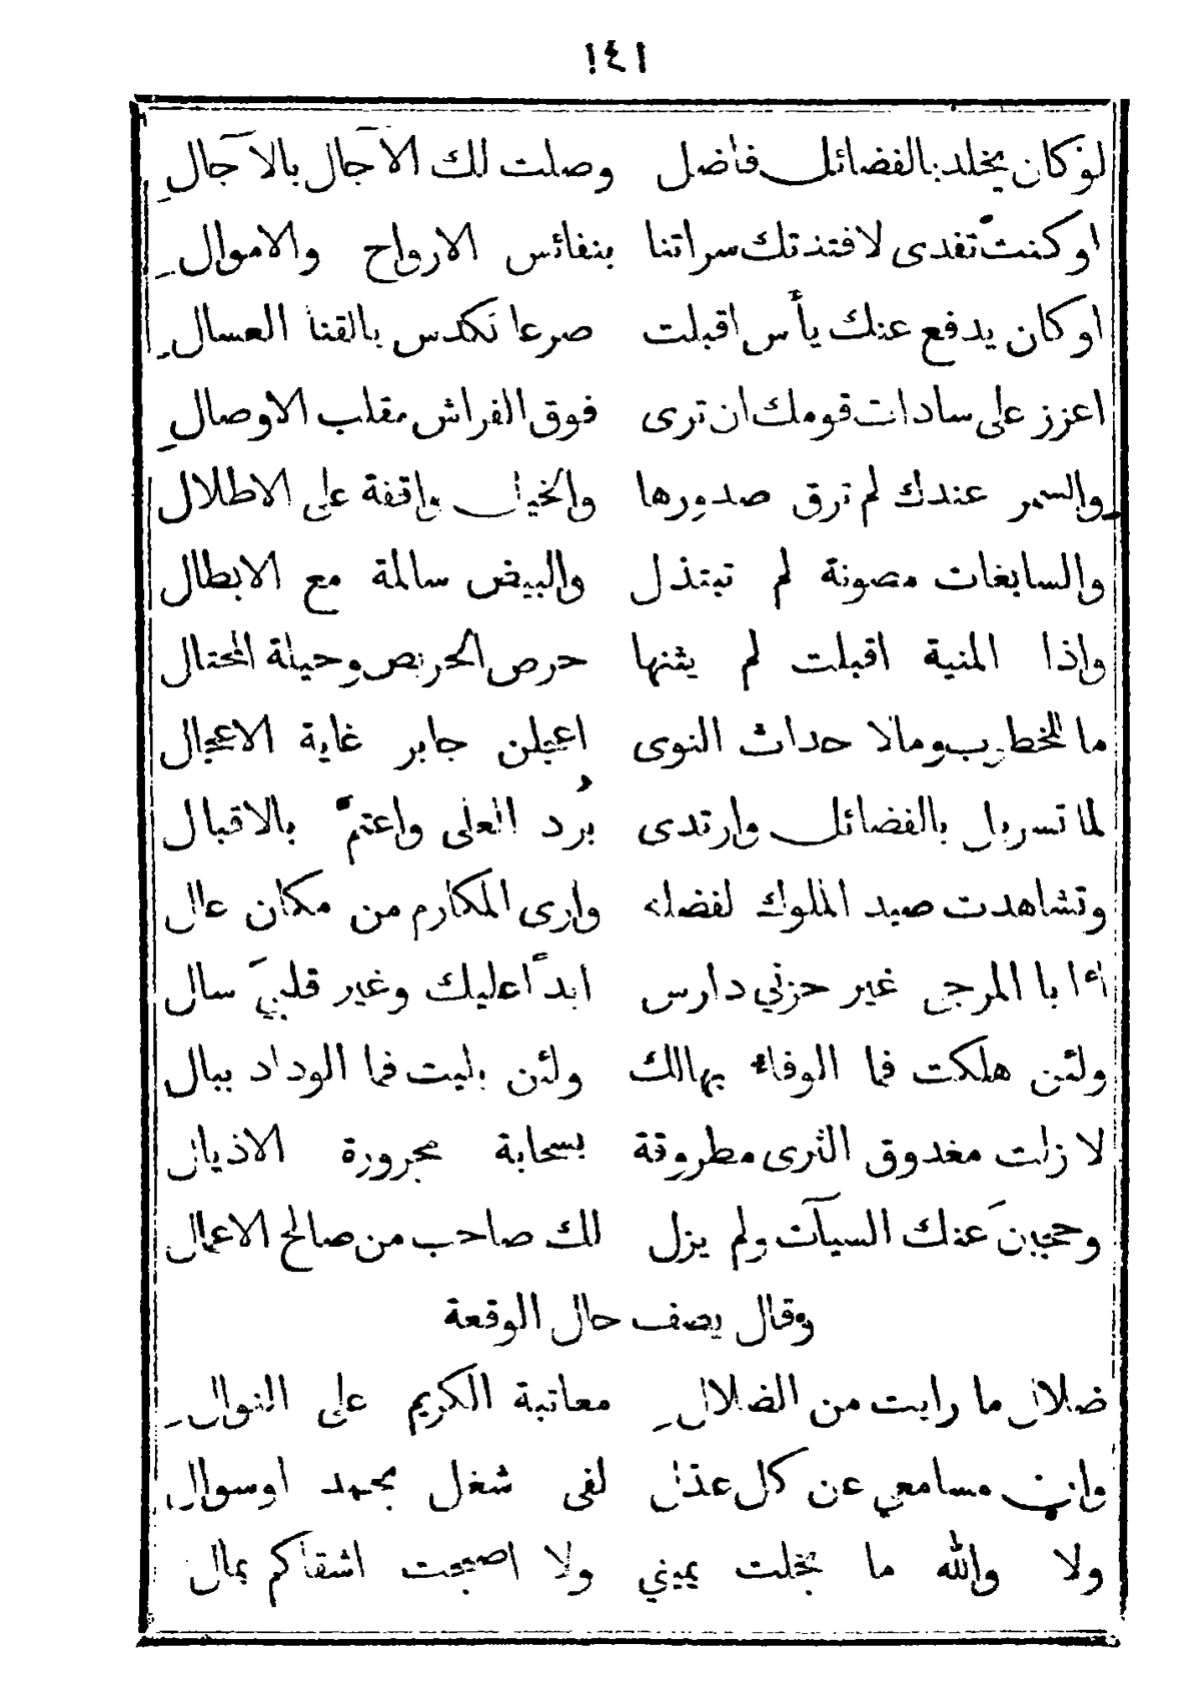 ١٤١
لو كان يخلد بالفضائل فاضل وصلت لك الآجال بالآجالِ
او كنتَ تفدى لافتدتك سراتنا بنفائس الارواح والاموالِ
او كان يدفع عنك بأس اقبلت صرعا تكدس بالقنا العسالِ
اعزز على سادات قومك ان ترى فوق الفراش مقلب الاوصالِ
والسمر عندك لم ترق صدورها والخيل واقفة على الاطلال
والسابغات مصونة لم تبتذل والبيض سالمة مع الابطال
واذا المنية اقبلت لم يثنها حرص الحريص وحيلة المحتال
ما للخطوب وما لاحداث النوى اعجلن جابر غاية الاعجال
لما تسربل بالفضائل وارتدى بُرد العلى واعتمّ بالاقبال
وتشاهدت صيد الملوك لفضله وارى المكارم من مكان عال
أأبا المرجى غير حزني دارس ابداً عليك وغير قلبيَ سال
ولئن هلكت فما الوفاء بهالك ولئن بليت فما الوداد ببال
لازلت مغدوق الثرى مطروقة بسحابة مجرورة الاذيال
وحجبنَ عنك السيآت ولم يزل لك صاحب من صالح الاعمال
وقال يصف حال الوقعة
ضلال ما رايت من الضلالِ معاتبة الكريم على النوالِ
وان مسامعي عن كل عذل لفى شغل بحمد او سوال
ولا والله ما بخلت يميني ولا اصبحت اشقاكم بمال